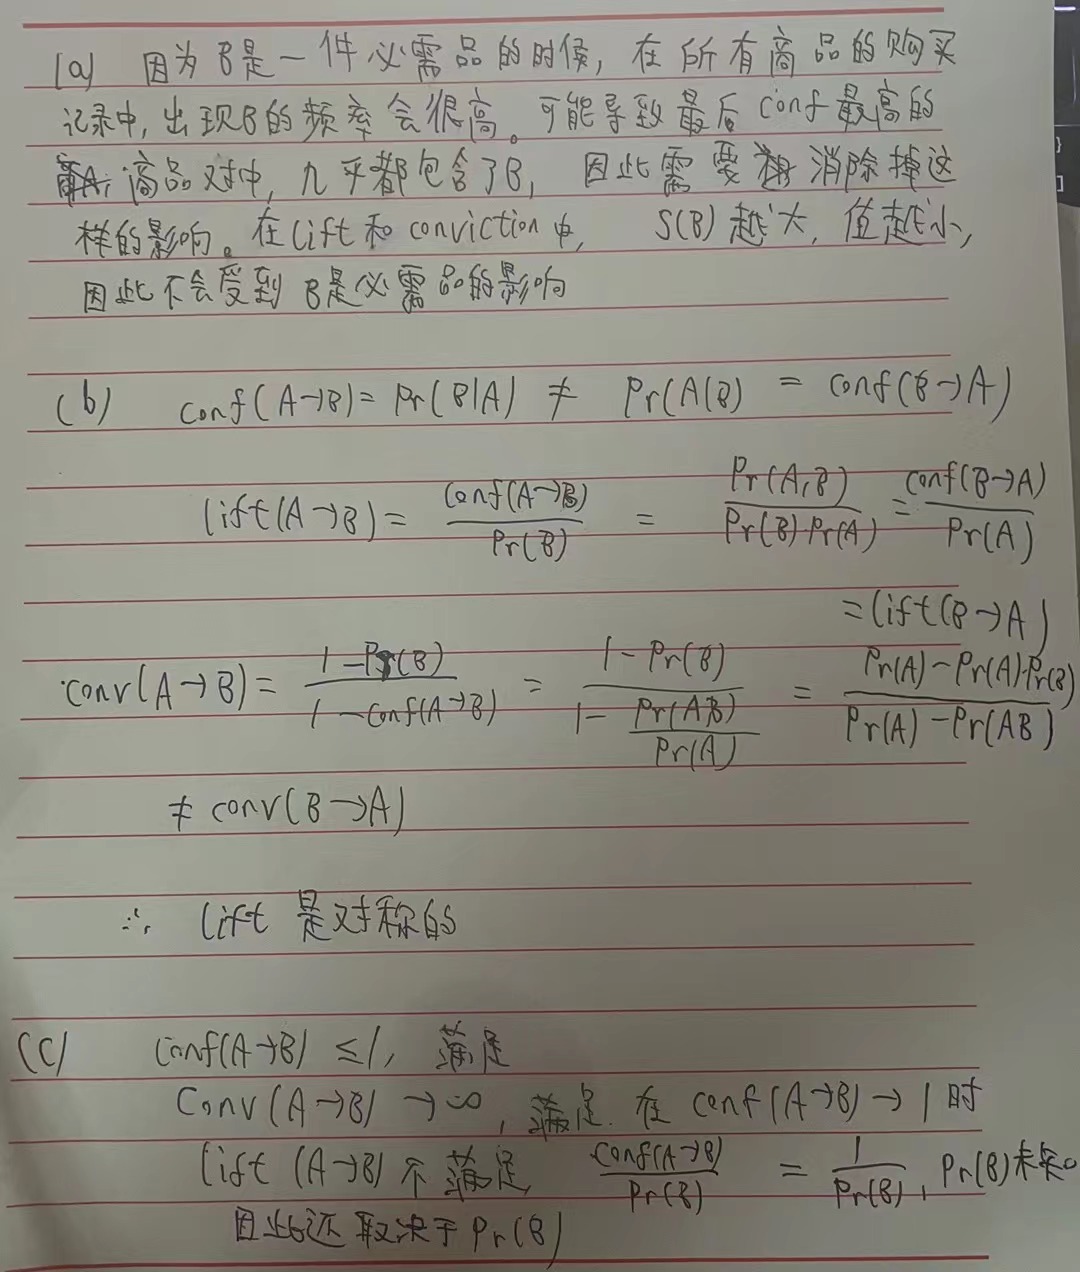 (a) 因为B是一件必需品的时候，在所有商品的购买
记录中，出现B的频率会很高。可能导致最后conf最高的
商品对中，几乎都包含了B，因此需要消除掉这
样的影响。在lift和conviction中，S(B)越大，值越小，
因此不会受到B是必需品的影响
(b) conf(A→B) = Pr(B|A) ≠ Pr(A|B) = conf(B→A)
lift(A→B) = conf(A→B) / Pr(B) = Pr(A,B) / Pr(B)·Pr(A) = conf(B→A) / Pr(A)
= lift(B→A)
conv(A→B) = 1-Pr(B) / 1-conf(A→B) = 1-Pr(B) / 1-Pr(AB)/Pr(A) = Pr(A)-Pr(A)·Pr(B) / Pr(A)-Pr(AB)
≠ conv(B→A)
∴ lift 是对称的
(c) conf(A→B) ≤1, 满足
Conv(A→B) →∞, 满足. 在 conf(A→B)→1时
lift (A→B) 不满足, conf(A→B) / Pr(B) = 1 / Pr(B), Pr(B)未知
因此还取决于Pr(B)